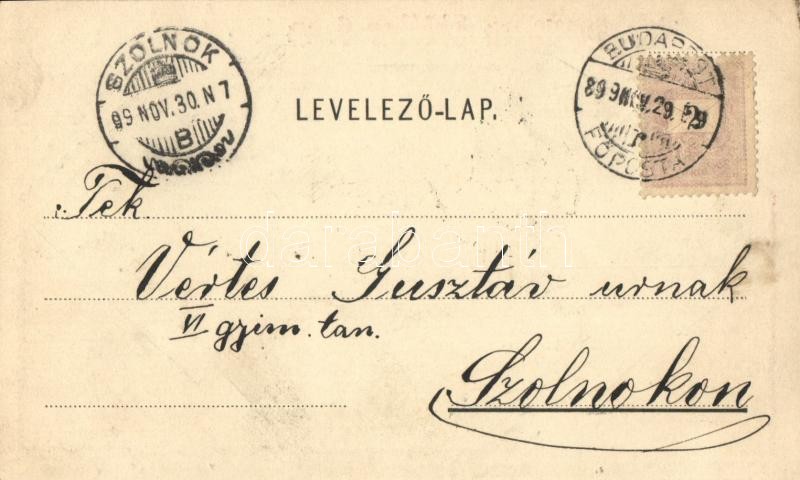 SZOLNOK
99 NOV. 30. N 7
B
BUDAPEST
FŐPOSTA
LEVELEZŐ-LAP.
Tek.
Vértes Gusztáv urnak
VI gyim. tan.
Szolnokon
darabanth